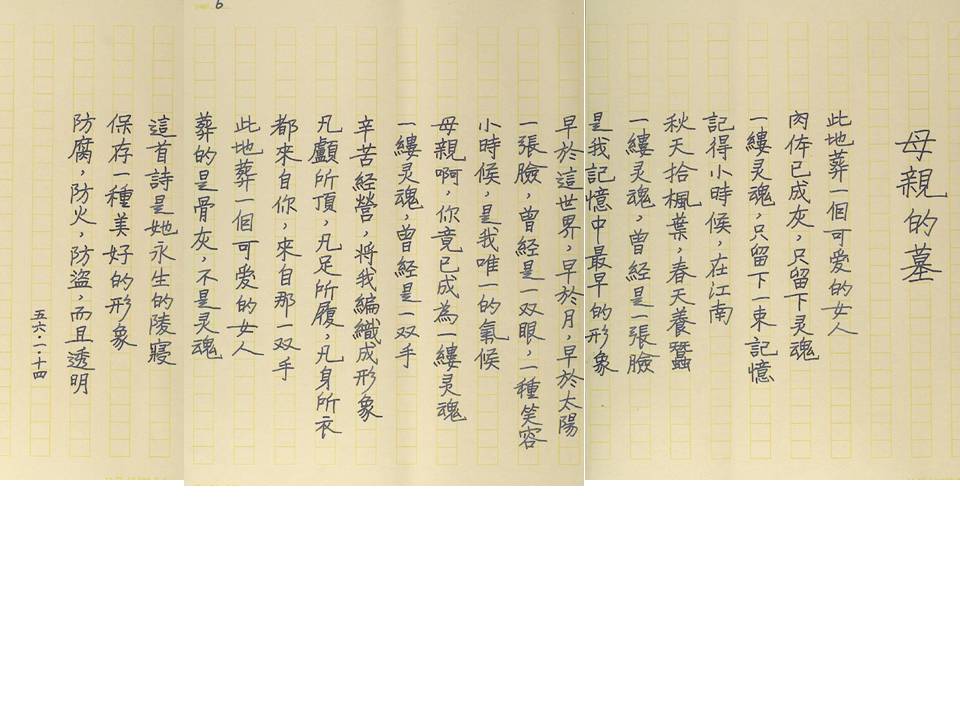 母親的墓
此地葬一個可爱的女人
肉体已成灰，只留下灵魂
一縷灵魂，只留下一束記憶
記得小時候，在江南
秋天拾楓葉，春天養蠶
一縷灵魂，曾經是一張臉
是我記憶中最早的形象
早於這世界，早於月，早於太陽
一張臉，曾经是一双眼，一種笑容
小時候，是我唯一的氣候
母親啊，你竟已成為一縷灵魂
一縷灵魂，曾經是一双手
辛苦経營，將我編織成形象
凡顱所頂，凡足所履，凡身所衣
都來自你，來自那一双手
此地葬一個可爱的女人
葬的是骨灰，不是灵魂
這首詩是她永生的陵寢
保存一種美好的形象
防腐，防火，防盜，而且透明
五六·一·十四
6